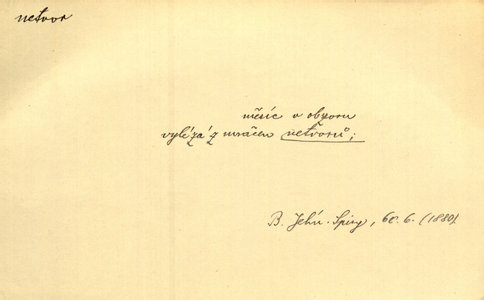 netvor
měsíc v obzoru
vylézá z mračen netvorů;
B. Jehl. Spisy, 60. 6. (1880)